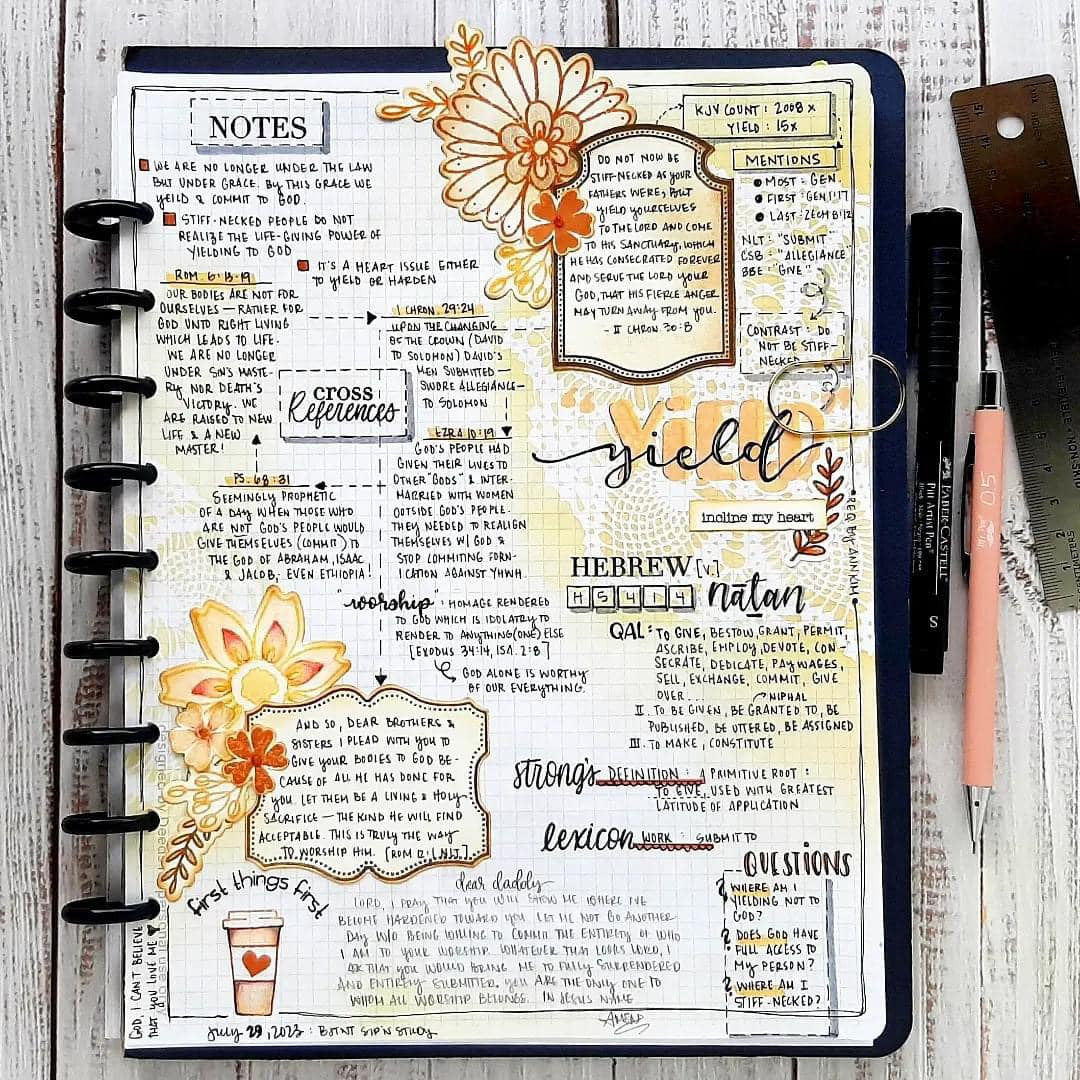 NOTES
WE ARE NO LONGER UNDER THE LAW
BUT UNDER GRACE. BY THIS GRACE WE
YEILD & COMMIT TO GOD.
STIFF-NECKED PEOPLE DO NOT
REALIZE THE LIFE-GIVING POWER OF
YIELDING TO GOD
IT'S A HEART ISSUE EITHER
TO YIELD OR HARDEN
ROM. 6:13-19
OUR BODIES ARE NOT FOR
OURSELVES — RATHER FOR
GOD UNTO RIGHT LIVING
WHICH LEADS TO LIFE.
WE ARE NO LONGER
UNDER SIN'S MASTE-
RY NOR DEATH'S
VICTORY. WE
ARE RAISED TO NEW
LIFE & A NEW
MASTER!
cross
References
1 CHRON. 29:24
UPON THE CHANGING
OF THE CROWN (DAVID
TO SOLOMON) DAVID'S
MEN SUBMITTED-
SWORE ALLEGIANCE-
TO SOLOMON
EZRA 10:19
GOD'S PEOPLE HAD
GIVEN THEIR LIVES TO
OTHER "GODS" & INTER-
MARRIED WITH WOMEN
OUTSIDE GOD'S PEOPLE.
THEY NEEDED TO REALIGN
THEMSELVES W/ GOD &
STOP COMMITING FORN-
ICATION AGAINST YHWH.
PS. 68:31
SEEMINGLY PROPHETIC
OF A DAY WHEN THOSE WHO
ARE NOT GOD'S PEOPLE WOULD
GIVE THEMSELVES (COMMIT) TO
THE GOD OF ABRAHAM, ISAAC
& JACOB, EVEN ETHIOPIA!
"worship": HOMAGE RENDERED
TO GOD WHICH IS IDOLATRY TO
RENDER TO ANYTHING(ONE) ELSE
[EXODUS 34:14, ISA. 2:8]
GOD ALONE IS WORTHY
OF OUR EVERYTHING.
AND SO, DEAR BROTHERS &
SISTERS I PLEAD WITH YOU TO
GIVE YOUR BODIES TO GOD BE-
CAUSE OF ALL HE HAS DONE FOR
YOU. LET THEM BE A LIVING & HOLY
SACRIFICE — THE KIND HE WILL FIND
ACCEPTABLE. THIS IS TRULY THE WAY
TO WORSHIP HIM. [ROM 12:1, NLT]
KJV COUNT: 2008 x
YIELD: 15x
MENTIONS
MOST: GEN.
FIRST: GEN 1:17
LAST: ZECH 8:12
NLT: "SUBMIT"
CSB: "ALLEGIANCE"
BBE: "GIVE"
CONTRAST: DO
NOT BE STIFF-
NECKED
DO NOT NOW BE
STIFF-NECKED AS YOUR
FATHERS WERE, BUT
YIELD YOURSELVES
TO THE LORD AND COME
TO HIS SANCTUARY, WHICH
HE HAS CONSECRATED FOREVER
AND SERVE THE LORD YOUR
GOD, THAT HIS FIERCE ANGER
MAY TURN AWAY FROM YOU.
- II CHRON. 30:8
"YIELD"
yield
incline my heart
REQ BY ANN KIM
HEBREW [V.]
H5414 nāṯan
QAL: TO GIVE, BESTOW, GRANT, PERMIT,
ASCRIBE, EMPLOY, DEVOTE, CON-
SECRATE, DEDICATE, PAY WAGES,
SELL, EXCHANGE, COMMIT, GIVE
OVER...
NIPHAL
II. TO BE GIVEN, BE GRANTED TO, BE
PUBLISHED, BE UTTERED, BE ASSIGNED
III. TO MAKE, CONSTITUTE
strong's DEFINITION: A PRIMITIVE ROOT:
TO GIVE, USED WITH GREATEST
LATITUDE OF APPLICATION
lexicon WORK: SUBMIT TO
QUESTIONS
? WHERE AM I
YIELDING NOT TO
GOD?
? DOES GOD HAVE
FULL ACCESS TO
MY PERSON?
? WHERE AM I
STIFF-NECKED?
first things first
dear daddy
LORD, I PRAY THAT YOU WILL SHOW ME WHERE I'VE
BECOME HARDENED TOWARD YOU. LET ME NOT GO ANOTHER
DAY W/O BEING WILLING TO COMMIT THE ENTIRETY OF WHO
I AM TO YOUR WORSHIP. WHATEVER THAT LOOKS LORD, I
ASK THAT YOU WOULD BRING ME TO FULLY SURRENDERED
AND ENTIRELY SUBMITTED. YOU ARE THE ONLY ONE TO
WHOM ALL WORSHIP BELONGS. IN JESUS NAME
AMEN
GOD I CAN'T BELIEVE
THAT YOU LOVE ME
July 29, 2023: BJTNT SIP N STUDY
FABER-CASTELL
Pitt Artist Pen
S
05